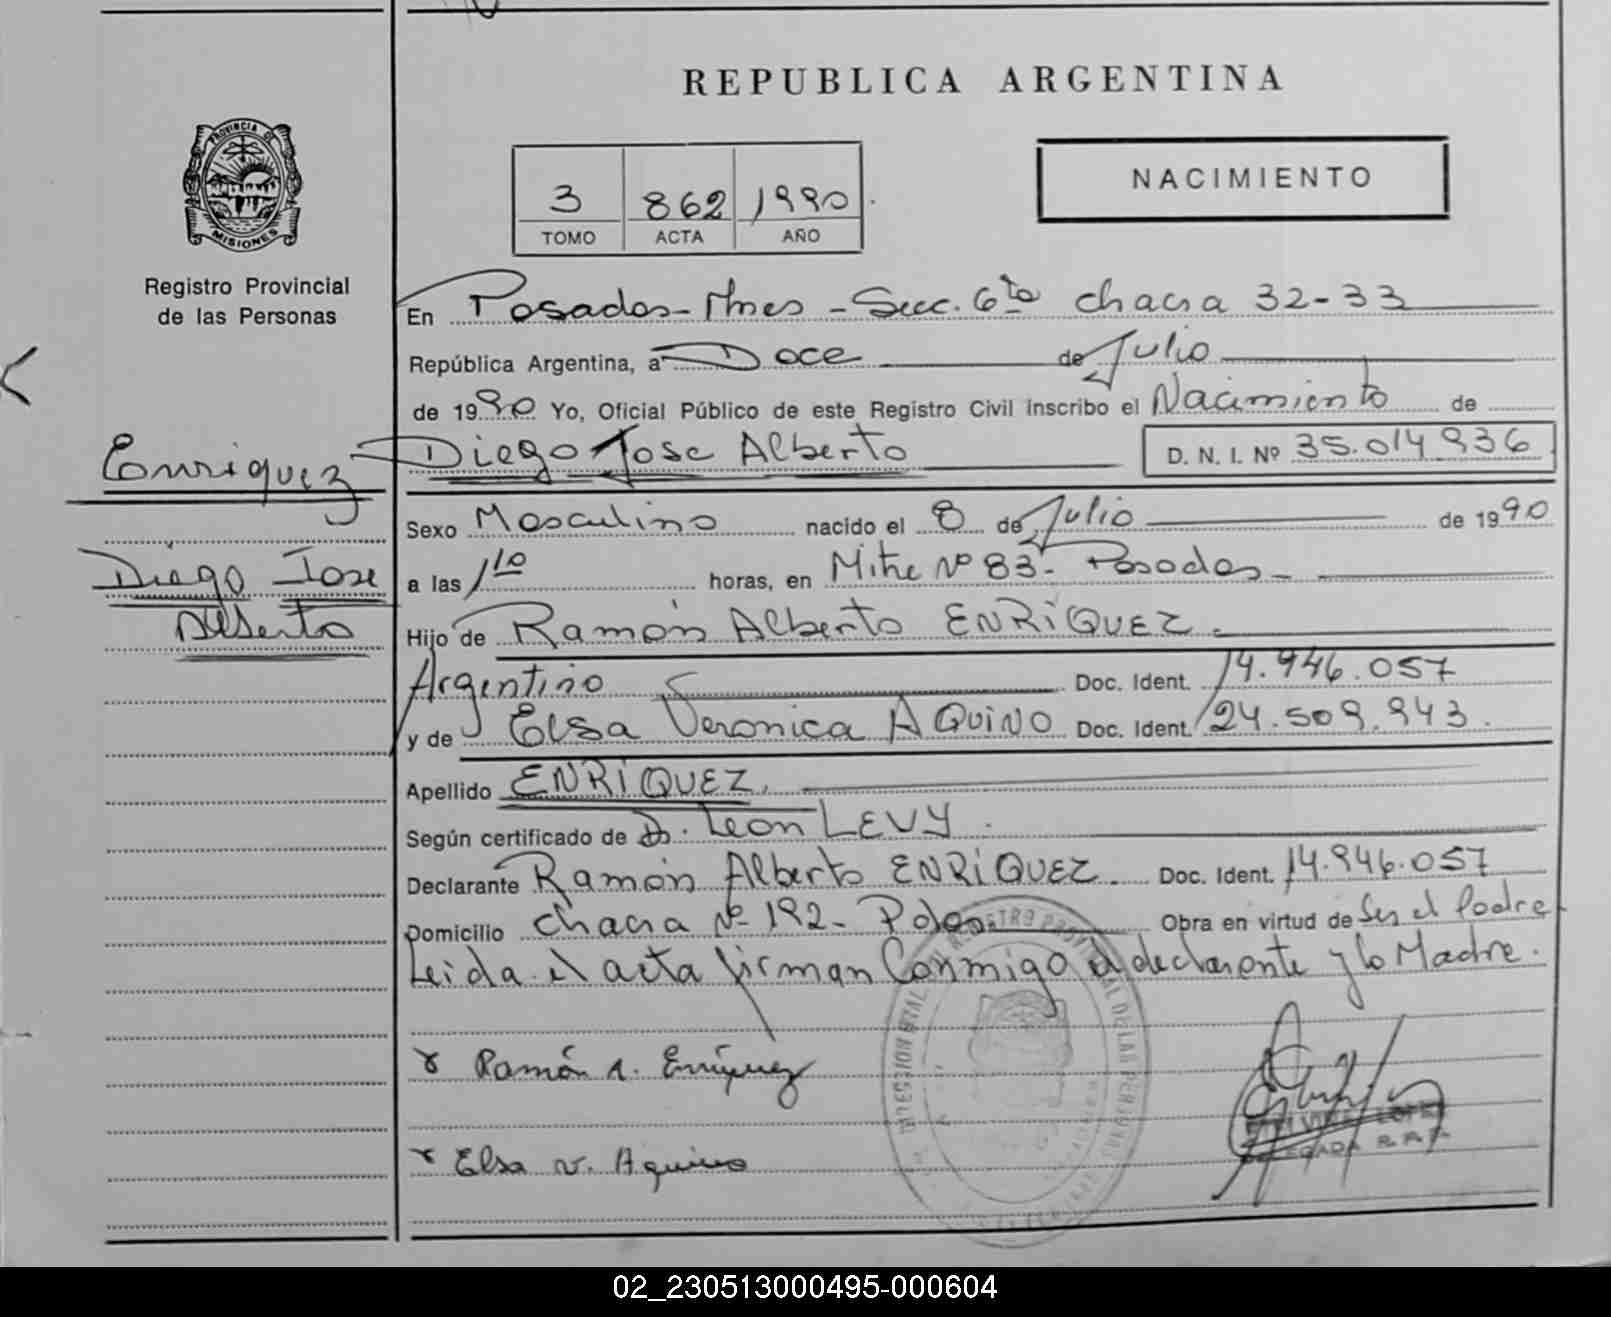 REPUBLICA ARGENTINA
PROVINCIA DE
MISIONES
Registro Provincial
de las Personas
3 862 1990
TOMO ACTA AÑO
NACIMIENTO
En Posadas-Mnes-Secc. 6ta chacra 32-33
República Argentina, a Doce de Julio
de 1990 Yo, Oficial Público de este Registro Civil inscribo el Nacimiento de
Enriquez
Diego Jose Alberto D. N. I. Nº 35.014.936
Sexo Masculino nacido el 8 de Julio de 1990
Diego Jose
Alberto
a las 1 10 horas, en Mitre Nº 83- Posadas-
Hijo de Ramón Alberto ENRiQUEZ.
Argentino Doc. Ident. 14.946.057
y de Elsa Veronica AQUiNO Doc. Ident. 24.509.943.
Apellido ENRiQUEZ.
Según certificado de Dr. Leon LEVY.
Declarante Ramón Alberto ENRiQUEZ Doc. Ident. 14.946.057
Domicilio chacra Nº 192- Pdas Obra en virtud de Ser el Padre
Leida el acta firman Conmigo el declarante y la Madre.
Ramón A. Enríquez
Elsa V. Aquino
02_230513000495-000604